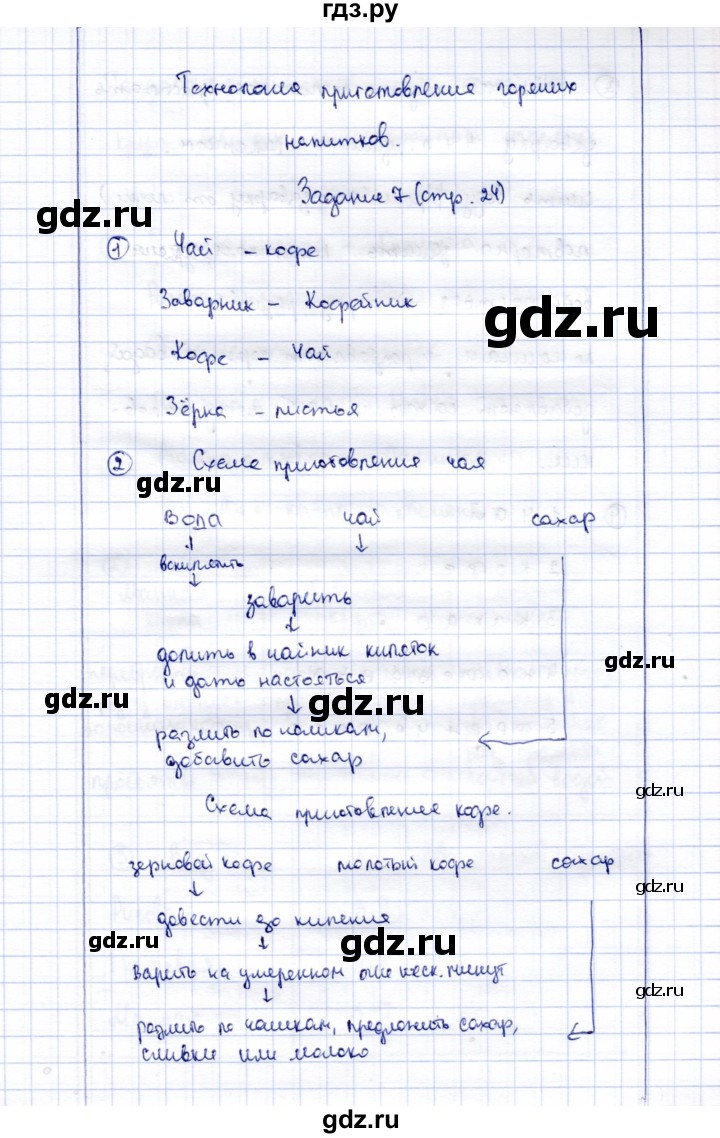 гдз.ру
Технология приготовления горячих
напитков.
Задание 7 (стр. 24)
gdz.ru
1 Чай – кофе
Заварник – Кофейник
gdz.ru
Кофе – Чай
Зёрна – листья
2 Схема приготовления чая
gdz.ru
Вода чай сахар
↓ ↓
вскипятить
↓
gdz.ru
заварить
↓
долить в чайник кипяток
gdz.ru
и дать настояться
↓
gdz.ru
gdz.ru
разлить по чашкам,
добавить сахар
gdz.ru
Схема приготовления кофе.
зерновой кофе молотый кофе сахар
gdz.ru
↓
довести до кипения
gdz.ru
↓
gdz.ru
варить на умеренном огне неск. минут
gdz.ru
↓
разлить по чашкам, предложить сахар,
сливки или молоко
gdz.ru